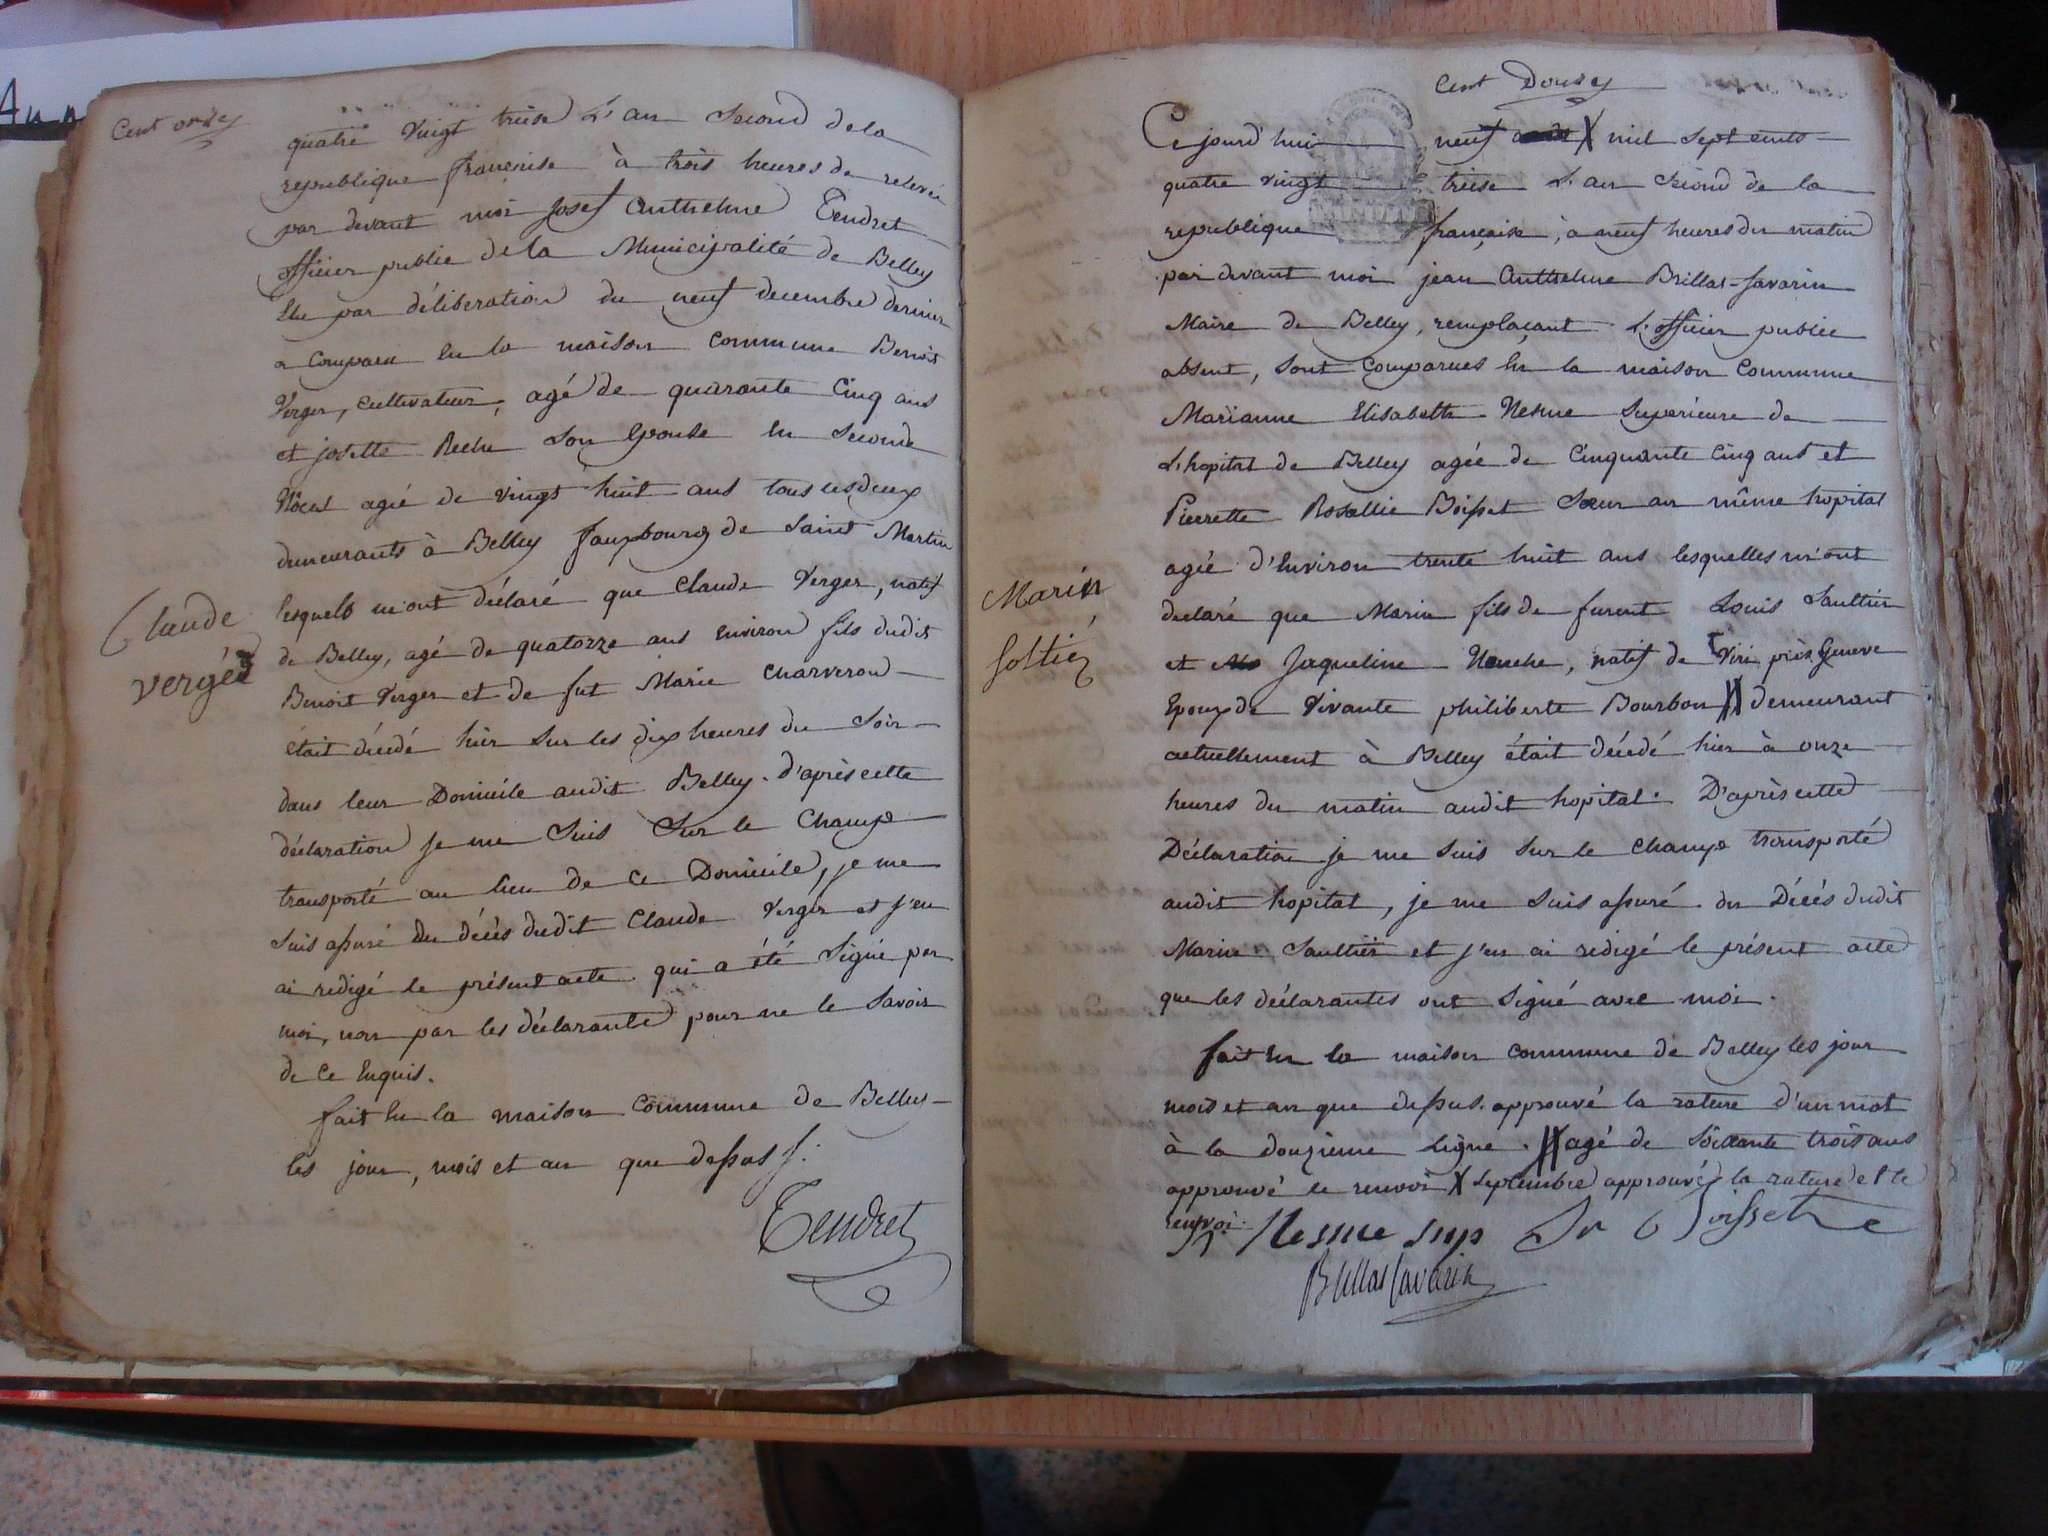 Cent onze
quatre vingt treise L'an Second de la
republique françoise à trois heures de relevée
par devant moi josef Anthelme Tendret
officier public de la Municipalité de Belley
Elu par déliberation du neuf decembre dernier
a comparu En la maison commune Benoit
Verger, cultivateur, agé de quarante Cinq ans
et josette Reche Son Epouse En Seconde
Nôces agée de vingt huit ans tous les deux
demeurants à Belley fauxbourg de Saint Martin
lesquels m'ont déclaré que Claude Verger, natif
de Belley, agé de quatorze ans Environ fils dudit
Benoit Verger et de fut Marie Charveron
était décédé hier Sur les dix heures du Soir
dans leur Domicile audit Belley. D'après cette
déclaration je me Suis Sur le Champ
transporté au lieu de ce Domicile, je me
Suis assuré du décès dudit Claude Verger et j'en
ai redigé le présent acte qui a été Signé par
moi, non par les déclarants pour ne le Savoir
de Ce Enquis.
fait En la maison commune de Belley
les jour, mois et an que dessus
Tendret
Claude
vergér
Cent Douze
Ce jourd'hui neuf X mil Sept cents
quatre vingt treise L'an Second de la
republique française, à neuf heures du matin
par devant moi jean Anthelme Brillat-Savarin
Maire de Belley, remplaçant L'officier public
absent, Sont Comparues En la maison Commune
Marianne Elisabeth Nesme Superieure de
L'hopital de Belley agée de Cinquante Cinq ans et
Pierrette Rosallie Boisset Sœur au même hopital
agée d'Environ trente huit ans lesquelles m'ont
declaré que Marin fils de furent Louis Saultier
et Jaqueline, natif de Viri près Geneve
Epoux de Vivante philiberte Bourbon # demeurant
actuellement à Belley était décedé hier à onze
heures du matin audit hopital. D'après cette
Déclaration je me Suis Sur le Champ transporté
audit hopital, je me Suis assuré du Décès dudit
Marin Saultier et j'en ai redigé le présent acte
que les déclarantes ont Signé avec moi.
fait En la maison commune de Belley les jour
mois et an que dessus. approuvé la rature d'un mot
à la douzieme Ligne. # agé de Soixante trois ans
approuvé le renvoi X Septembre approuvé la rature et le
renvoi.
Nesme sup Sr Boisset
Brillat Savarin
Marin
Soltiér